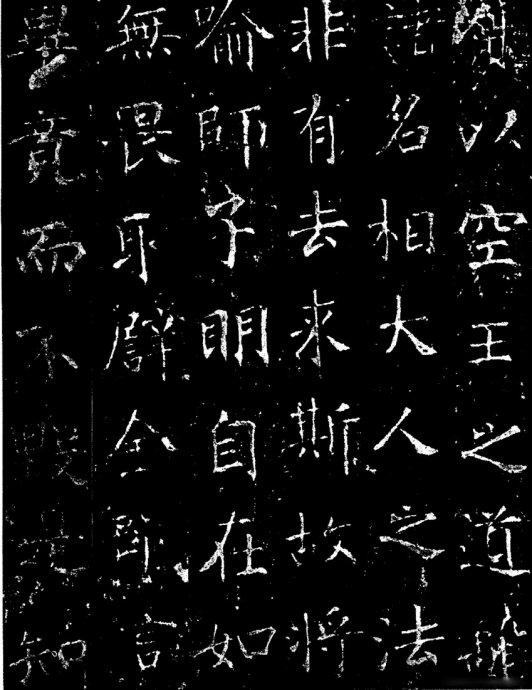 以空王之道離
諸名相大人之法
非有去来斯故将
喻師子明自在如
無畏取譬金剛言
畢竟而不毀是知